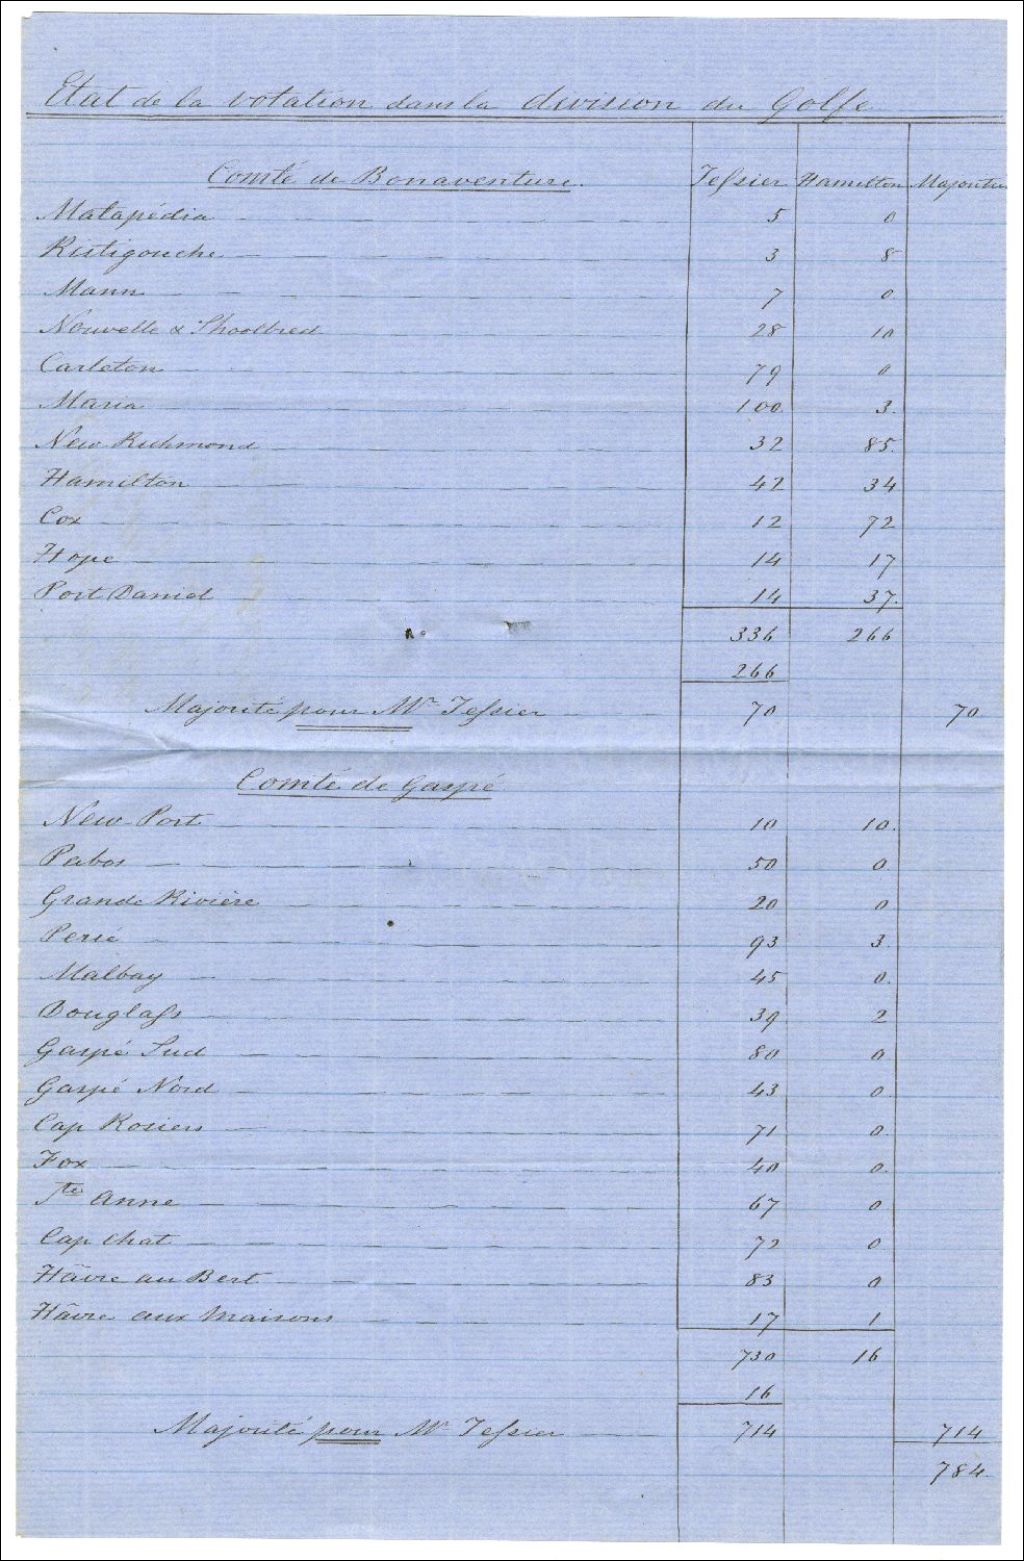 Etat de la votation dans la division du Golfe
Comté de Bonaventure. Tessier Hamilton Majorité
Matapédia 5 0
Ristigouche 3 8
Mann 7 0
Nouvelle & Shoolbred 28 10
Carleton 79 0
Maria 100 3
New Richmond 32 85
Hamilton 42 34
Cox 12 72
Hope 14 17
Port Daniel 14 37
336 266
266
Majorité pour Mr Tessier 70 70
Comté de Gaspé
New-Port 10 10
Pabos 50 0
Grande Rivière 20 0
Percé 93 3
Malbay 45 0
Douglass 39 2
Gaspé Sud 80 0
Gaspé Nord 43 0
Cap Rosiers 71 0
Fox 40 0
Ste Anne 67 0
Cap Chat 72 0
Hâvre au Bert 83 0
Hâvre aux Maisons 17 1
730 16
16
Majorité pour Mr Tessier 714 714
784